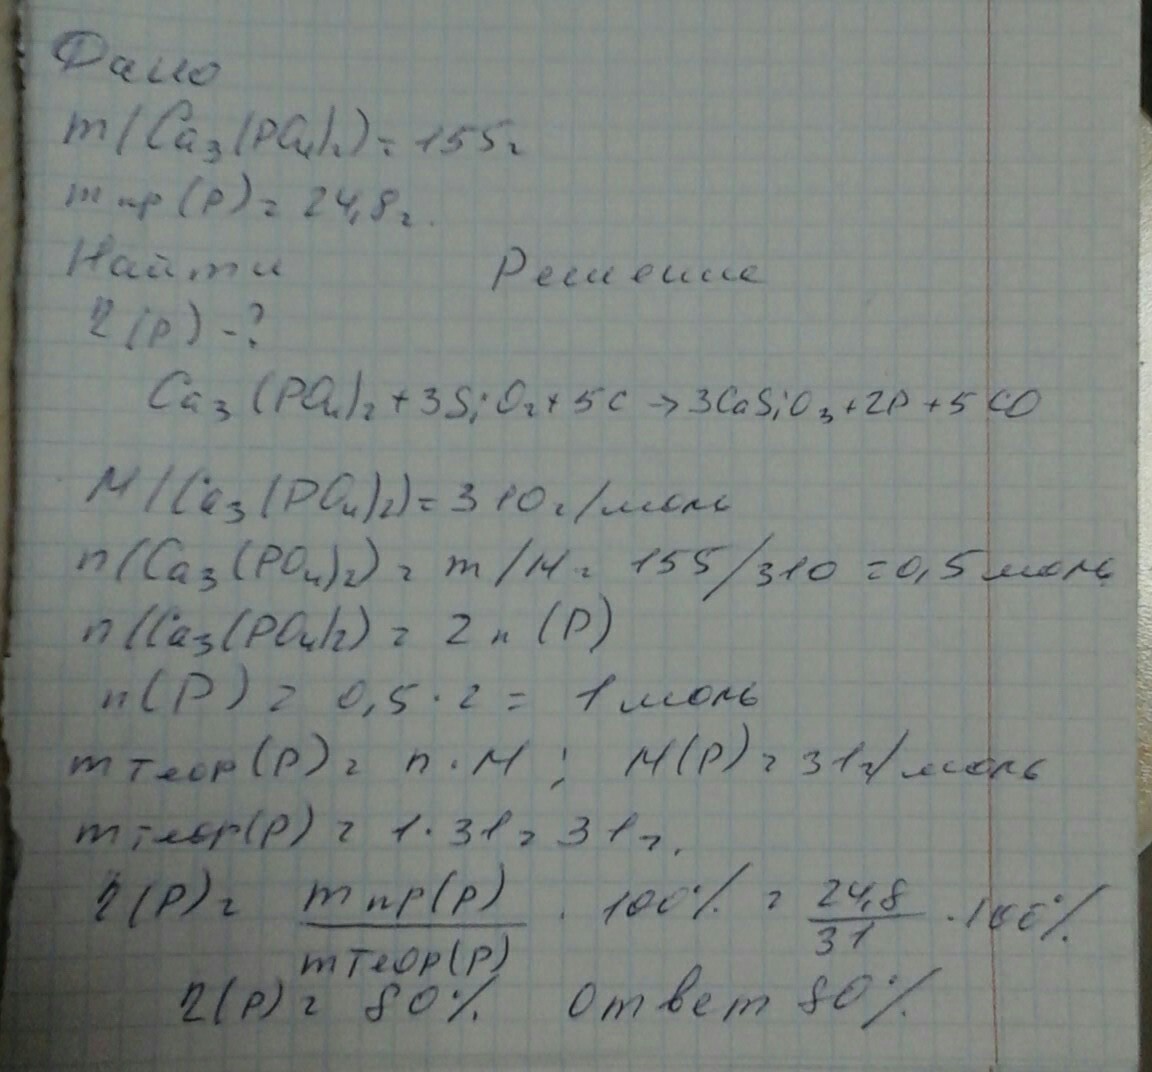 Дано
m(Ca₃(PO₄)₂) = 155г
m пр (P) = 24,8г.
Найти
Решение
η(P) - ?
Ca₃(PO₄)₂ + 3SiO₂ + 5C → 3CaSiO₃ + 2P + 5CO
M(Ca₃(PO₄)₂) = 310г/моль
n(Ca₃(PO₄)₂) = m/M = 155/310 = 0,5 моль
n(Ca₃(PO₄)₂) = 2n(P)
n(P) = 0,5 · 2 = 1 моль
m теор(P) = n · M ; M(P) = 31г/моль
m теор(P) = 1 · 31 = 31г.
η(P) = m пр(P) / m теор(P) · 100% = 24,8 / 31 · 100%
η(P) = 80% Ответ 80%